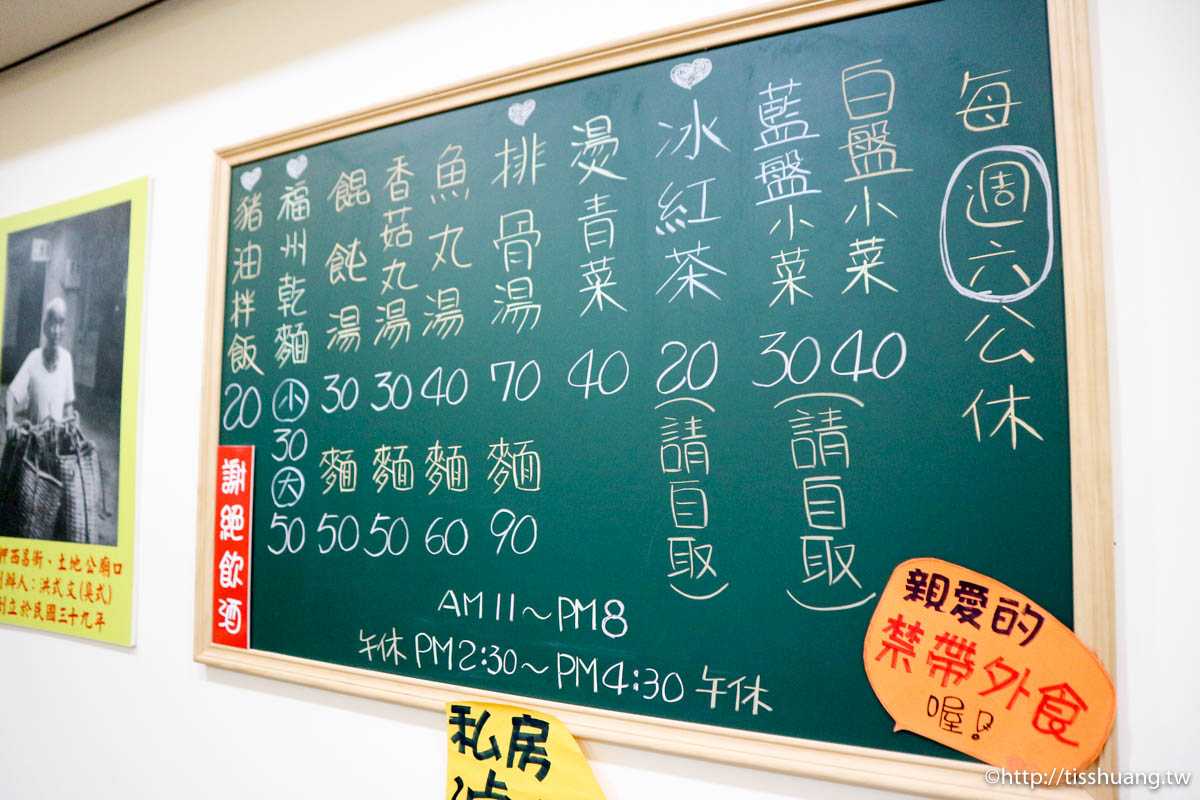 每週六公休
白盤小菜 40
藍盤小菜 30
(請自取)
冰紅茶 20 (請自取)
燙青菜 40
排骨湯 70 麵 90
魚丸湯 40 麵 60
香菇丸湯 30 麵 50
餛飩湯 30 麵 50
福州乾麵 小 30 大 50
豬油拌飯 20
AM 11～PM8
午休 PM2:30～PM4:30 午休
謝絕飲酒
親愛的
禁帶外食
喔!
私房
岬西昌街、土地公廟口
辦人:洪式文(臭式)
創立於民國三十九年
©http://tisshuang.tw